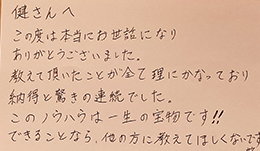 健さんへ
この度は本当にお世話になり
ありがとうございました。
教えて頂いたことが全て理にかなっており
納得と驚きの連続でした。
このノウハウは一生の宝物です!!
できることなら、他の方に教えてほしくないです